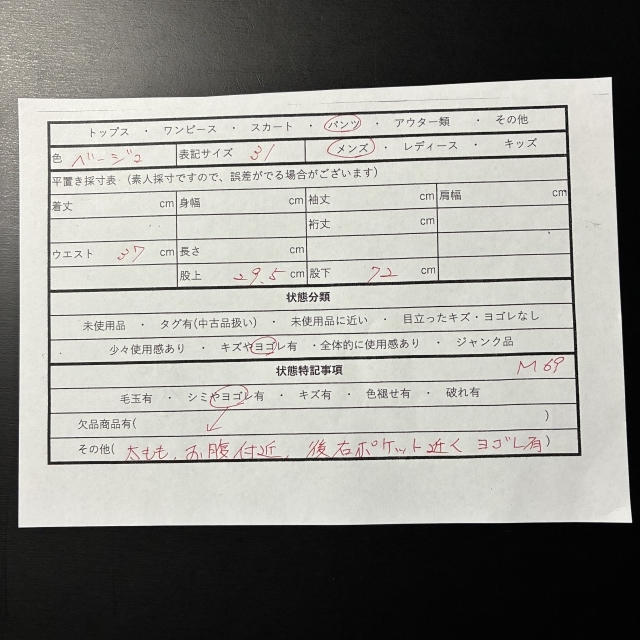 トップス ・ ワンピース ・ スカート ・ パンツ ・ アウター類 ・ その他
色 ベージュ 表記サイズ 31 メンズ ・ レディース ・ キッズ
平置き採寸表 (素人採寸ですので、誤差がでる場合がございます)
着丈 cm 身幅 cm 袖丈 cm 肩幅 cm
裄丈 cm
ウエスト 37 cm 長さ cm
股上 29.5 cm 股下 72 cm
状態分類
未使用品 ・ タグ有(中古品扱い) ・ 未使用品に近い ・ 目立ったキズ・ヨゴレなし
少々使用感あり ・ キズやヨゴレ有 ・全体的に使用感あり ・ ジャンク品
状態特記事項 M69
毛玉有 ・ シミやヨゴレ有 ・ キズ有 ・ 色褪せ有 ・ 破れ有
欠品商品有( )
その他( 太もも、お腹付近、後右ポケット近く ヨゴレ有)